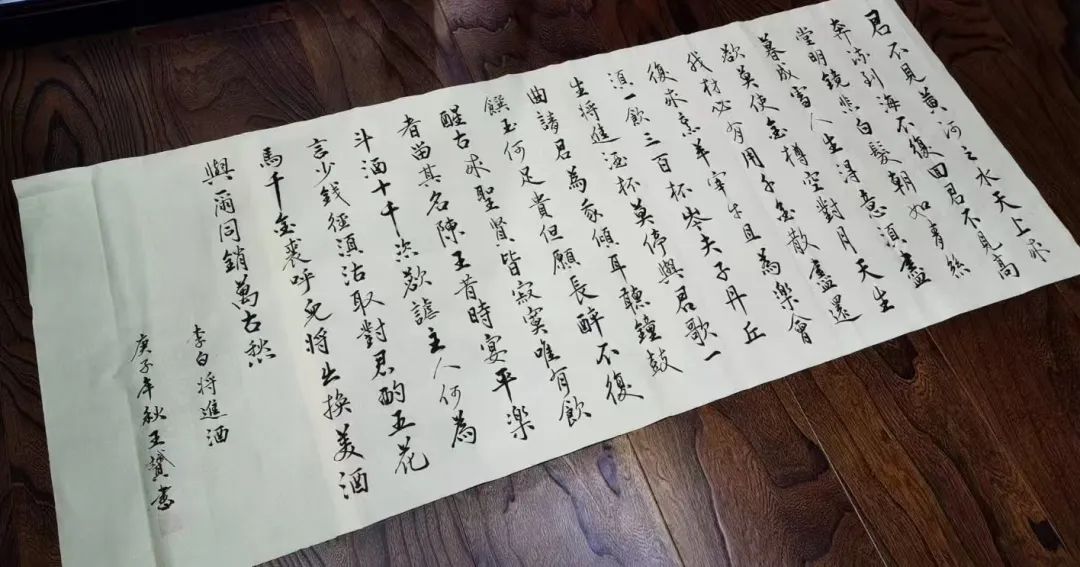 君不見黃河之水天上來
奔流到海不復回君不見高
堂明鏡悲白髮朝如青絲
暮成雪人生得意須盡
歡莫使金樽空對月天生
我材必有用千金散盡還
復來烹羊宰牛且為樂會
須一飲三百杯岑夫子丹丘
生將進酒杯莫停與君歌一
曲請君為我傾耳聽鐘鼓
饌玉何足貴但願長醉不復
醒古來聖賢皆寂寞唯有飲
者留其名陳王昔時宴平樂
斗酒十千恣歡謔主人何為
言少錢徑須沽取對君酌五花
馬千金裘呼兒將出換美酒
與爾同銷萬古愁
李白將進酒
庚子年秋王贊書